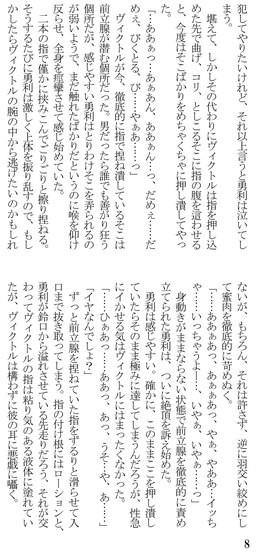 犯してやりたいけれど、それ以上言うと勇利は泣いてし
まう。
　堪えて、しかしその代わりにヴィクトルは指を押し込
めた先で曲げ、コリ、としこるそこに指の腹を這わせる
と、今度はそこばかりをめちゃくちゃに押し潰してやっ
た。
「…ああぁっ…あぁぁん、ああぁん…っ、だめぇ……だ
めぇ、びくとる、び…やぁあ……っ」
　ヴィクトルが今、徹底的に指で捏ね潰しているそこは
前立腺が潜む個所だった。男だったら誰でも善がり狂う
個所だが、感じやすい勇利はとりわけそこを弄られるの
が弱いようで、まだ触れたばかりだというのに喉を仰け
反らせ、全身を痙攣させて感じ始めていた。
　二本の指で僅かに挟みこんでこりこりと擦り捏ねる。
そうするたびに勇利は激しく上体を振り乱すので、もし
かしたらヴィクトルの腕の中から逃げたいのかもしれ
ないが、もちろん、それは許さず、逆に羽交い絞めにし
て蜜肉を徹底的に苛めぬく。
「……あああぁあっ、あぁぁあっ、やぁ、やああ…イッち
ゃ……いっちゃうよ…！、いやぁ、いやぁ……っ」
　身動きがままならない状態で前立腺を徹底的に責め
立てられた勇利は、ついに絶頂を訴え始めた。
　勇利は感じやすい。確かに、このままここを押し潰し
ていたらそのまま極みに達してしまうんだろうが、性急
にイかせる気はヴィクトルにはまったくなかった。
「……ひぁあっ……ああっ、あっ、うそ…や、あ……」
「イヤなんでしょ？」
　ずっと前立腺を捏ねていた指をずるりと滑らせて入
口まで抜き取ってしまう。指の付け根にはローションと、
勇利が鈴口から溢れさせている先走りだろう、それが交
わってヴィクトルの指は粘り気のある液体に塗れてい
たが、ヴィクトルは構わずに彼の耳に悪戯に囁く。
8